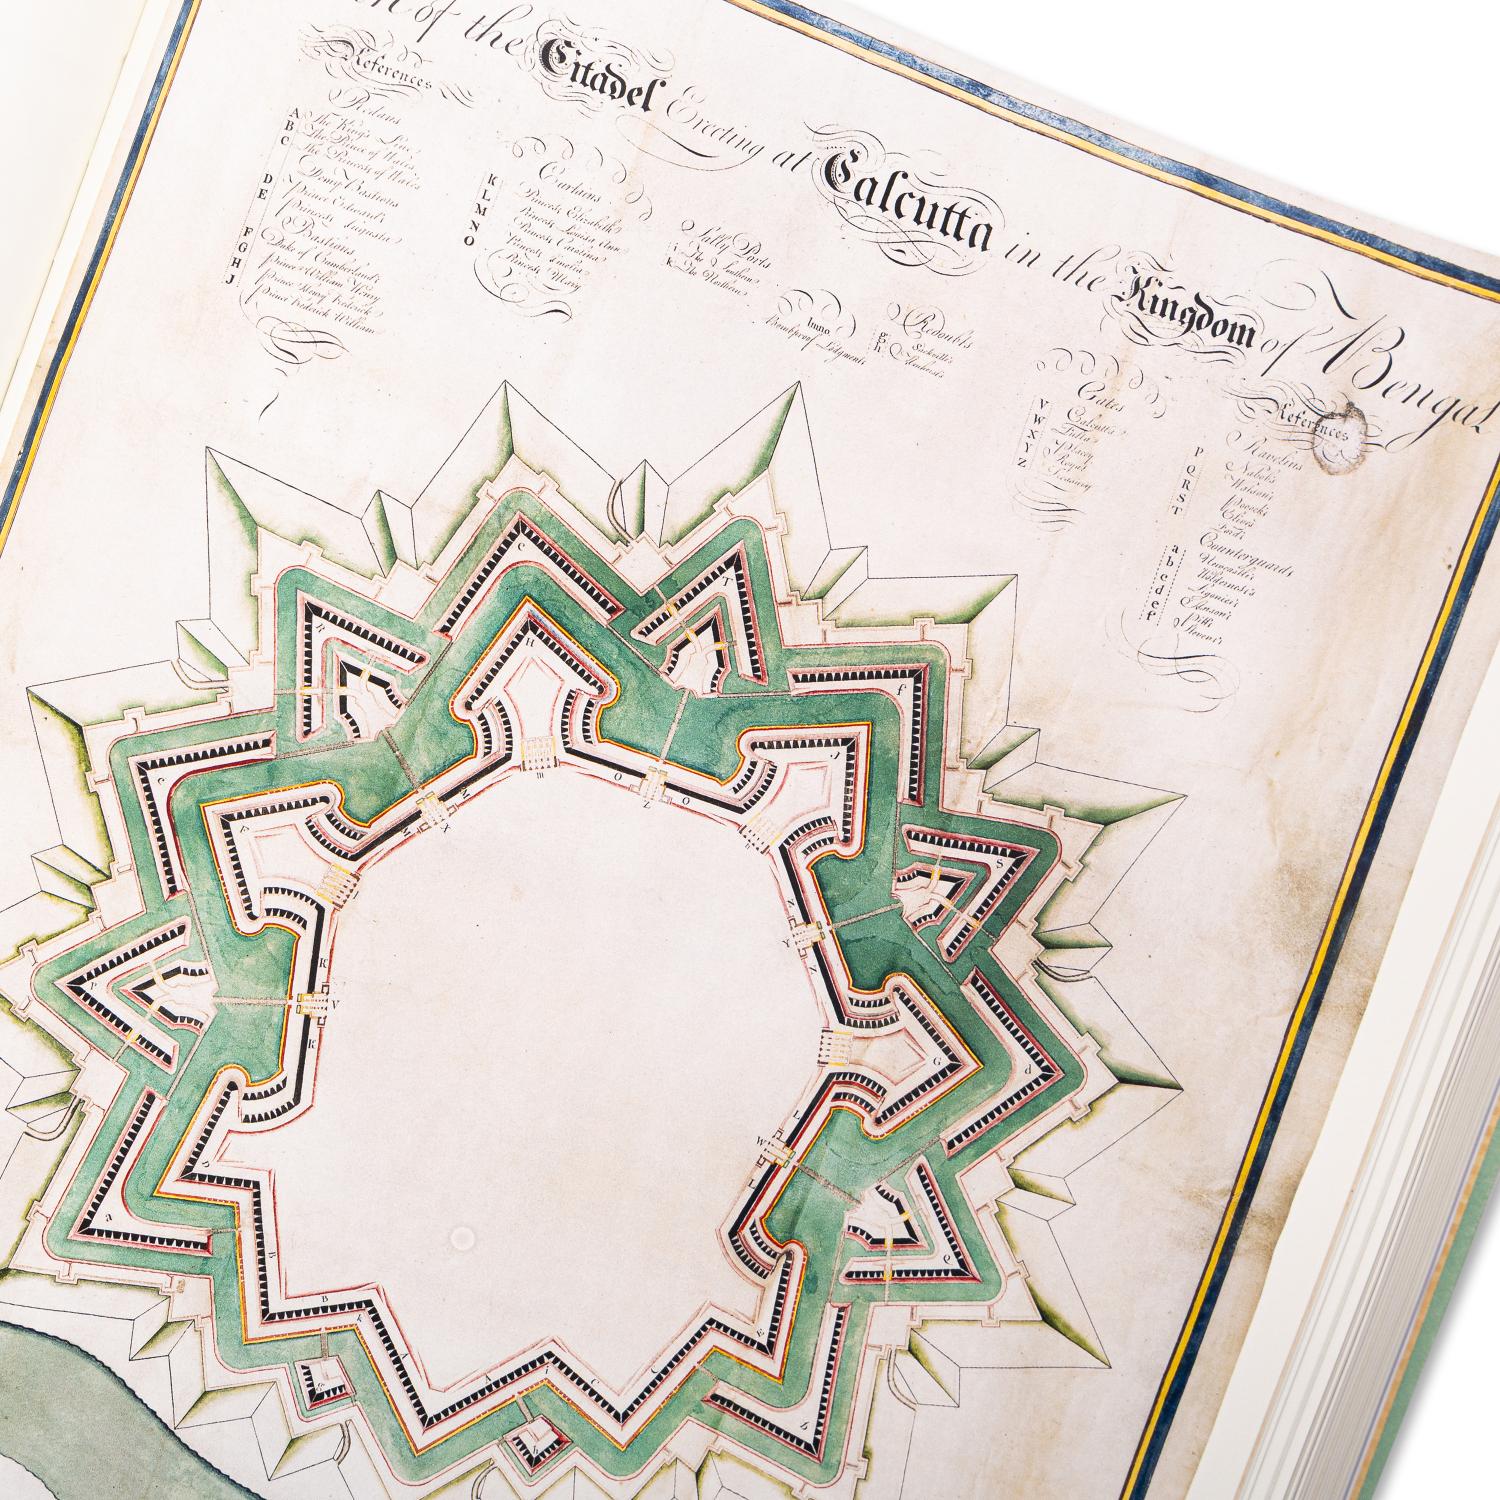 of the Citadel Erecting at Calcutta in the Kingdom of Bengal
References
Redans
A The King's Line,
B The Prince of Wales,
C The Princess of Wales
Demy Bastions
D Prince Edward's
E Princess Augusta's
Bastions
F Duke of Cumberland's
G Prince William Henry
H Prince Henry Frederick
J Prince Frederick William
Curtains
K Princess Elizabeth's
L Princess Louisa Ann
M Princess Carolina's
N Princess Amelia's
O Princess Mary
Sally Ports
i The Southern
k The Northern
lmno
Bombproof Lodgments
Redoubts
g Sackville's
h Amherst's
Gates
V Calcutta
W Fulta
X Plassey
Y Royal
Z Treasury
References
Ravelins
P Nabob's
Q Watson's
R Pocock's
S Clive's
T Ford's
Counterguards
a Newcastle's
b Holderness's
c Ligonier's
d Anson's
e Pitt's
f Stevens's
e
T
R
H
f
c
J
F
m
O
Z
O
M
M
X
n
S
P
K
V
K
N
Y
N
G
d
L
W
L
D
a
B
B
k
A
A
i
C
C
E
Q
b
g
h